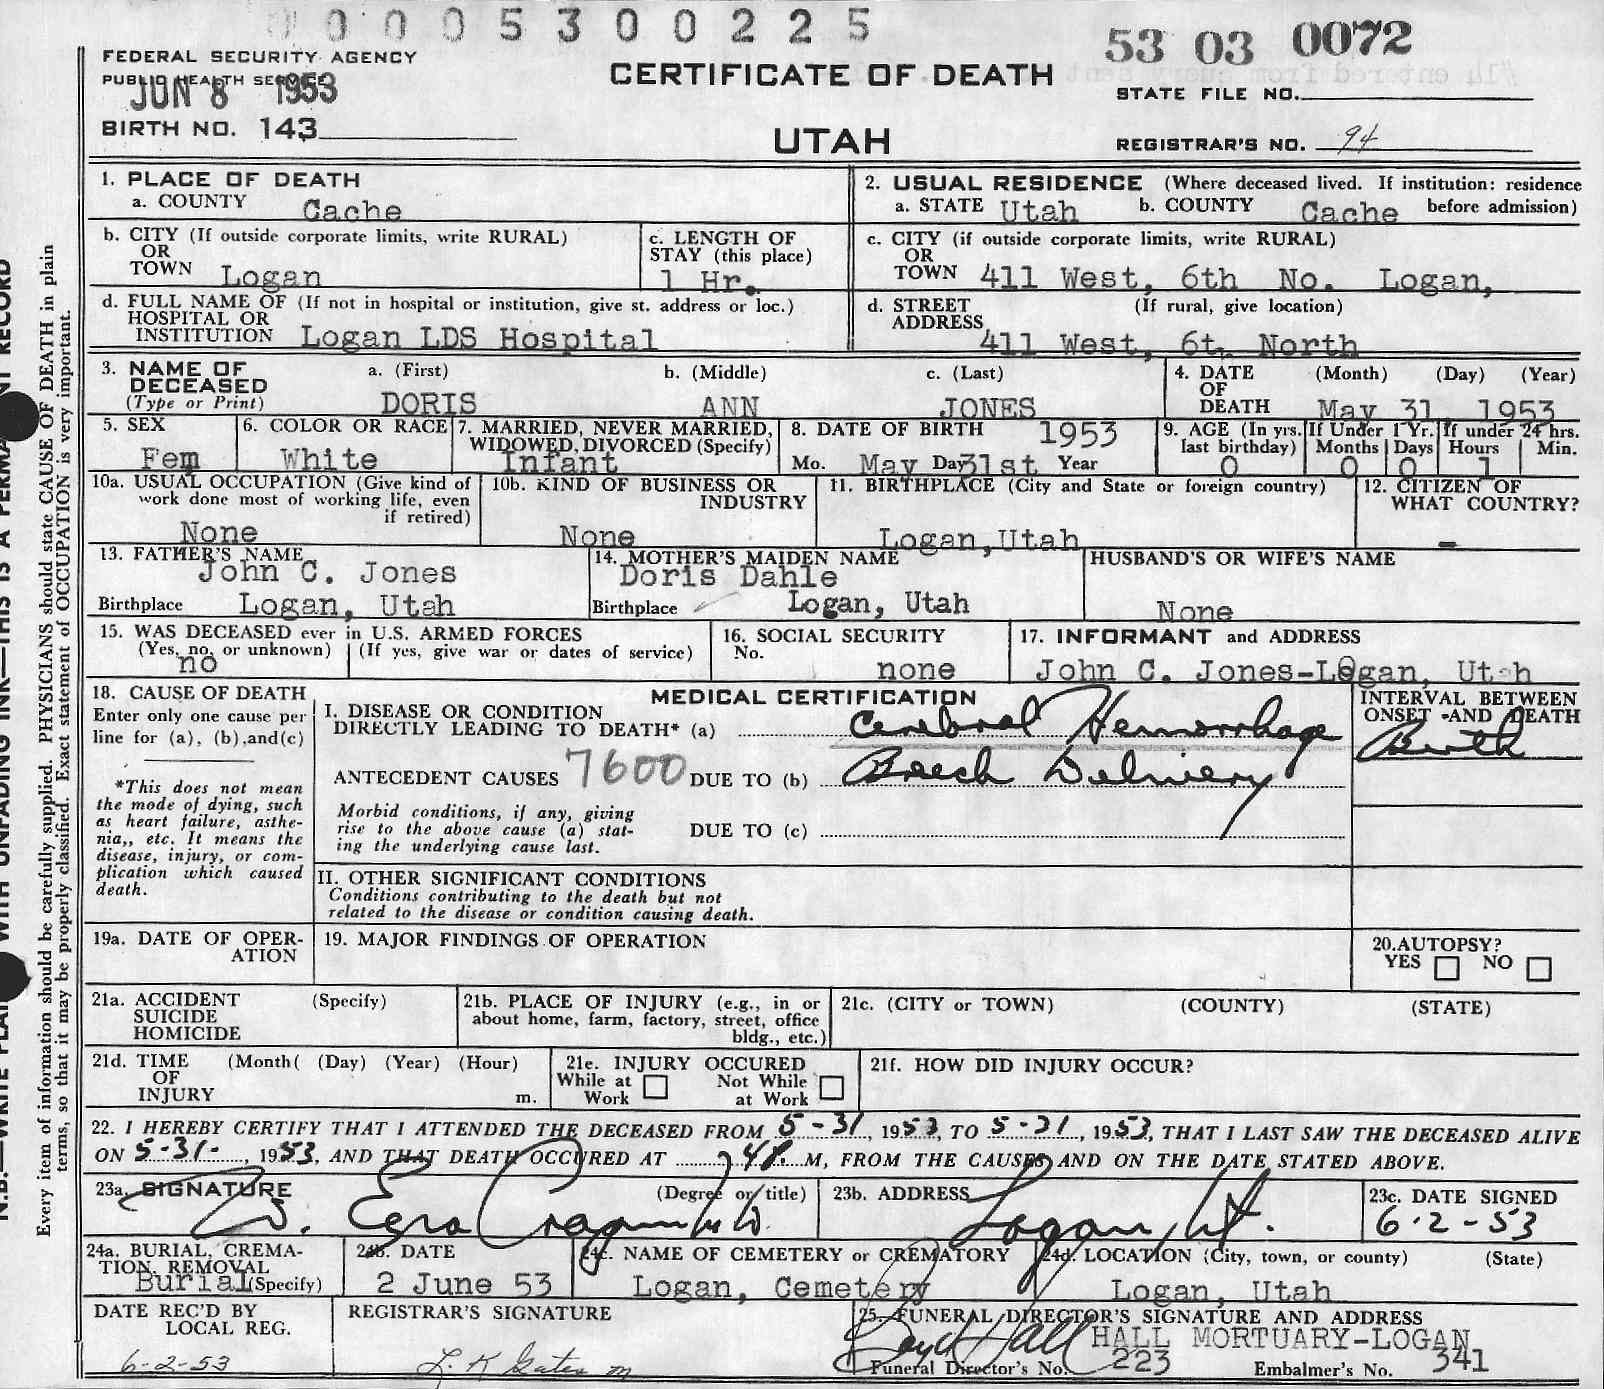 0 0 0 5 3 0 0 2 2 5
53 03 0072
FEDERAL SECURITY AGENCY
PUBLIC HEALTH SERVICE
JUN 8 1953
CERTIFICATE OF DEATH
STATE FILE NO.
BIRTH NO. 143
UTAH
REGISTRAR'S NO. 94
1. PLACE OF DEATH
a. COUNTY Cache
2. USUAL RESIDENCE (Where deceased lived. If institution: residence
a. STATE Utah b. COUNTY Cache before admission)
b. CITY (If outside corporate limits, write RURAL)
OR
TOWN Logan
c. LENGTH OF
STAY (this place)
1 Hr.
c. CITY (if outside corporate limits, write RURAL)
OR
TOWN 411 West, 6th No. Logan,
d. FULL NAME OF (If not in hospital or institution, give st. address or loc.)
HOSPITAL OR
INSTITUTION Logan LDS Hospital
d. STREET (If rural, give location)
ADDRESS
411 West, 6t. North
3. NAME OF a. (First) b. (Middle) c. (Last)
DECEASED
(Type or Print) DORIS ANN JONES
4. DATE (Month) (Day) (Year)
OF
DEATH May 31, 1953
5. SEX
Fem
6. COLOR OR RACE
White
7. MARRIED, NEVER MARRIED,
WIDOWED, DIVORCED (Specify)
Infant
8. DATE OF BIRTH 1953
Mo. May Day 31st Year
9. AGE (In yrs.
last birthday)
0
If Under 1 Yr.
Months Days
0 0
If under 24 hrs.
Hours Min.
1
10a. USUAL OCCUPATION (Give kind of
work done most of working life, even
if retired)
None
10b. KIND OF BUSINESS OR
INDUSTRY
None
11. BIRTHPLACE (City and State or foreign country)
Logan,Utah
12. CITIZEN OF
WHAT COUNTRY?
-
13. FATHER'S NAME
John C. Jones
Birthplace Logan, Utah
14. MOTHER'S MAIDEN NAME
Doris Dahle
Birthplace Logan, Utah
HUSBAND'S OR WIFE'S NAME
None
15. WAS DECEASED ever in U.S. ARMED FORCES
(Yes, no, or unknown) (If yes, give war or dates of service)
no
16. SOCIAL SECURITY
No.
none
17. INFORMANT and ADDRESS
John C. Jones-Logan, Utah
18. CAUSE OF DEATH
Enter only one cause per
line for (a), (b),and(c)
*This does not mean
the mode of dying, such
as heart failure, asthe-
nia,, etc. It means the
disease, injury, or com-
plication which caused
death.
MEDICAL CERTIFICATION
I. DISEASE OR CONDITION
DIRECTLY LEADING TO DEATH* (a) Cerebral Hemorrhage
ANTECEDENT CAUSES 7600 DUE TO (b) Breech Delivery
Morbid conditions, if any, giving
rise to the above cause (a) stat-
ing the underlying cause last.
DUE TO (c)
INTERVAL BETWEEN
ONSET AND DEATH
Birth
II. OTHER SIGNIFICANT CONDITIONS
Conditions contributing to the death but not
related to the disease or condition causing death.
19a. DATE OF OPER-
ATION
19. MAJOR FINDINGS OF OPERATION
20.AUTOPSY?
YES NO
21a. ACCIDENT (Specify)
SUICIDE
HOMICIDE
21b. PLACE OF INJURY (e.g., in or
about home, farm, factory, street, office
bldg., etc.)
21c. (CITY or TOWN) (COUNTY) (STATE)
21d. TIME (Month( (Day) (Year) (Hour)
OF
INJURY m.
21e. INJURY OCCURED
While at Not While
Work at Work
21f. HOW DID INJURY OCCUR?
22. I HEREBY CERTIFY THAT I ATTENDED THE DECEASED FROM 5-31, 1953, TO 5-31, 1953, THAT I LAST SAW THE DECEASED ALIVE
ON 5-31-, 1953, AND THAT DEATH OCCURED AT M, FROM THE CAUSES AND ON THE DATE STATED ABOVE.
23a. SIGNATURE (Degree or title)
W. Ezra Cragun M.D.
23b. ADDRESS
Logan, Ut.
23c. DATE SIGNED
6-2-53
24a. BURIAL, CREMA-
TION, REMOVAL
Burial (Specify)
24b. DATE
2 June 53
24c. NAME OF CEMETERY or CREMATORY
Logan, Cemetery
24d. LOCATION (City, town, or county) (State)
Logan, Utah
DATE REC'D BY
LOCAL REG.
6-2-53
REGISTRAR'S SIGNATURE
25. FUNERAL DIRECTOR'S SIGNATURE AND ADDRESS
Boyd Hall HALL MORTUARY-LOGAN
Funeral Director's No. 223 Embalmer's No. 341
Every item of information should be carefully supplied. PHYSICIANS should state CAUSE OF DEATH in plain
terms, so that it may be properly classified. Exact statement of OCCUPATION is very important.
WITH UNFADING INK—THIS IS A RECORD